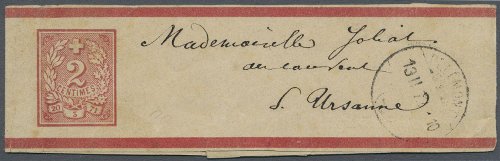 2
CENTIMES
20 S 71
Mademoiselle Joliat
au couvent
S. Ursanne
13 II
10